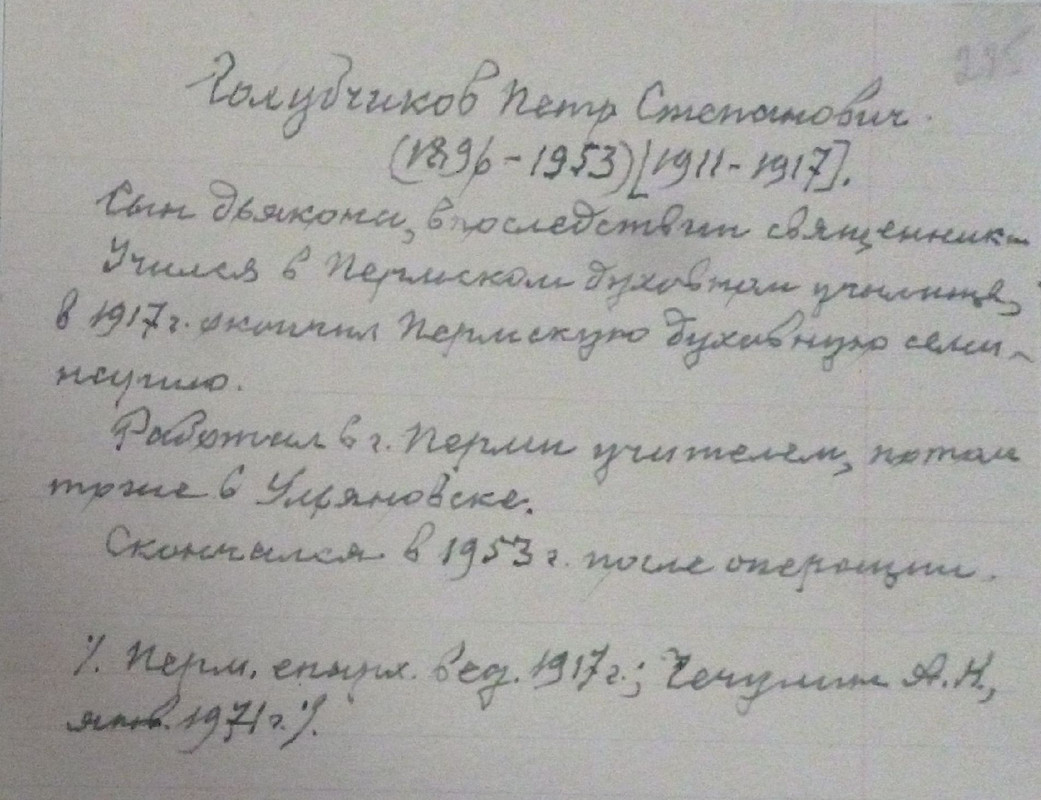 Голубчиков Петр Степанович.
(1896-1953)[1911-1917].
Сын дьякона, впоследствии священника
Учился в Пермском духовном училище,
в 1917 г. окончил Пермскую духовную семи-
нарию.
Работал в г. Перми учителем, потом
тоже в Ульяновске.
Скончался в 1953 г. после операции.
/. Перм. епарх. вед. 1917 г.; Чечулин А.Н.,
янв. 1971 г. /.